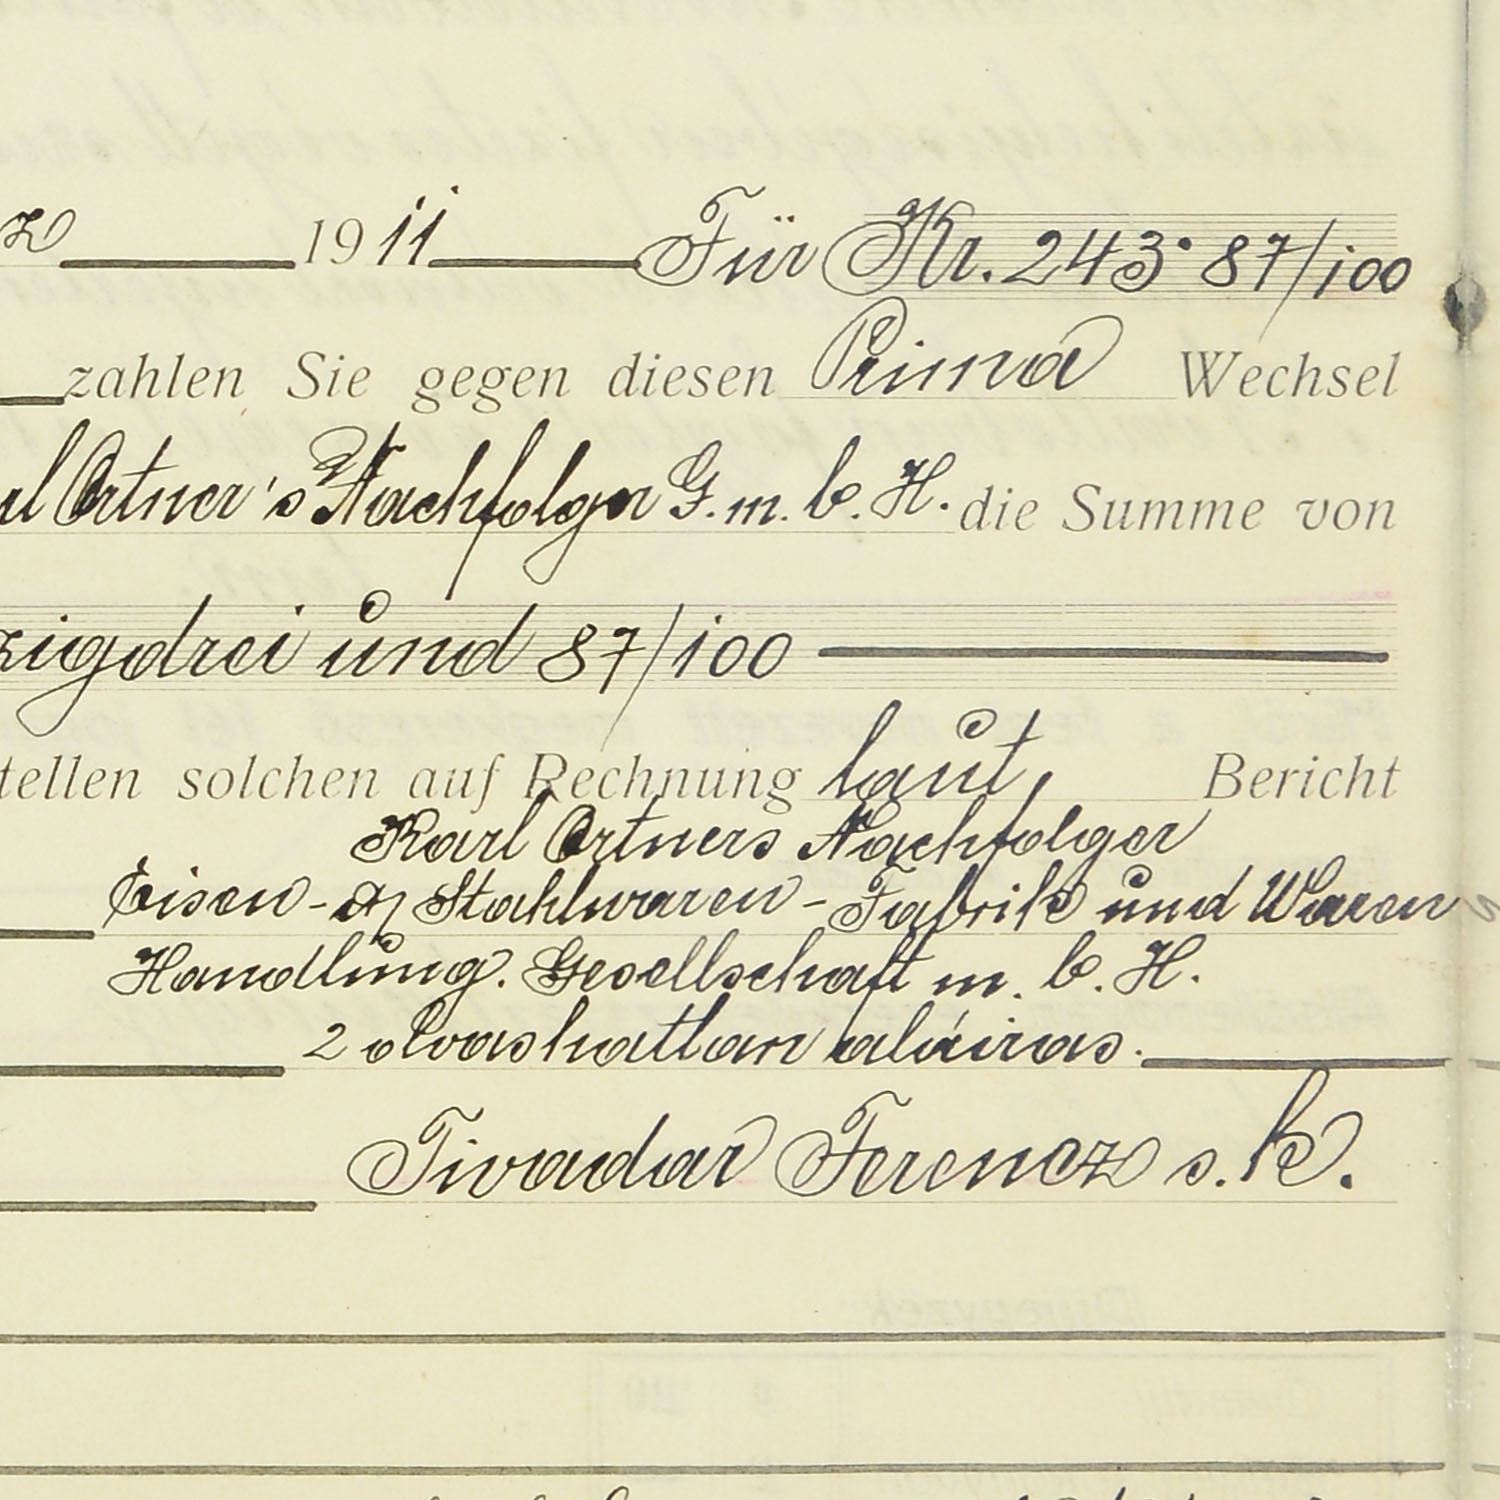 z 1911 Für Kr. 243·87/100
zahlen Sie gegen diesen Prima Wechsel
rl Ortner's Nachfolger G. m. b. H. die Summe von
zigdrei und 87/100
tellen solchen auf Rechnung laut, Bericht
Karl Ortners Nachfolger
Eisen- & Stahlwaren-Fabrik und Waren
Handlung. Gesellschaft m. b. H.
2 olvashatlan aláiras.
Tivadar Ferencz s. k.